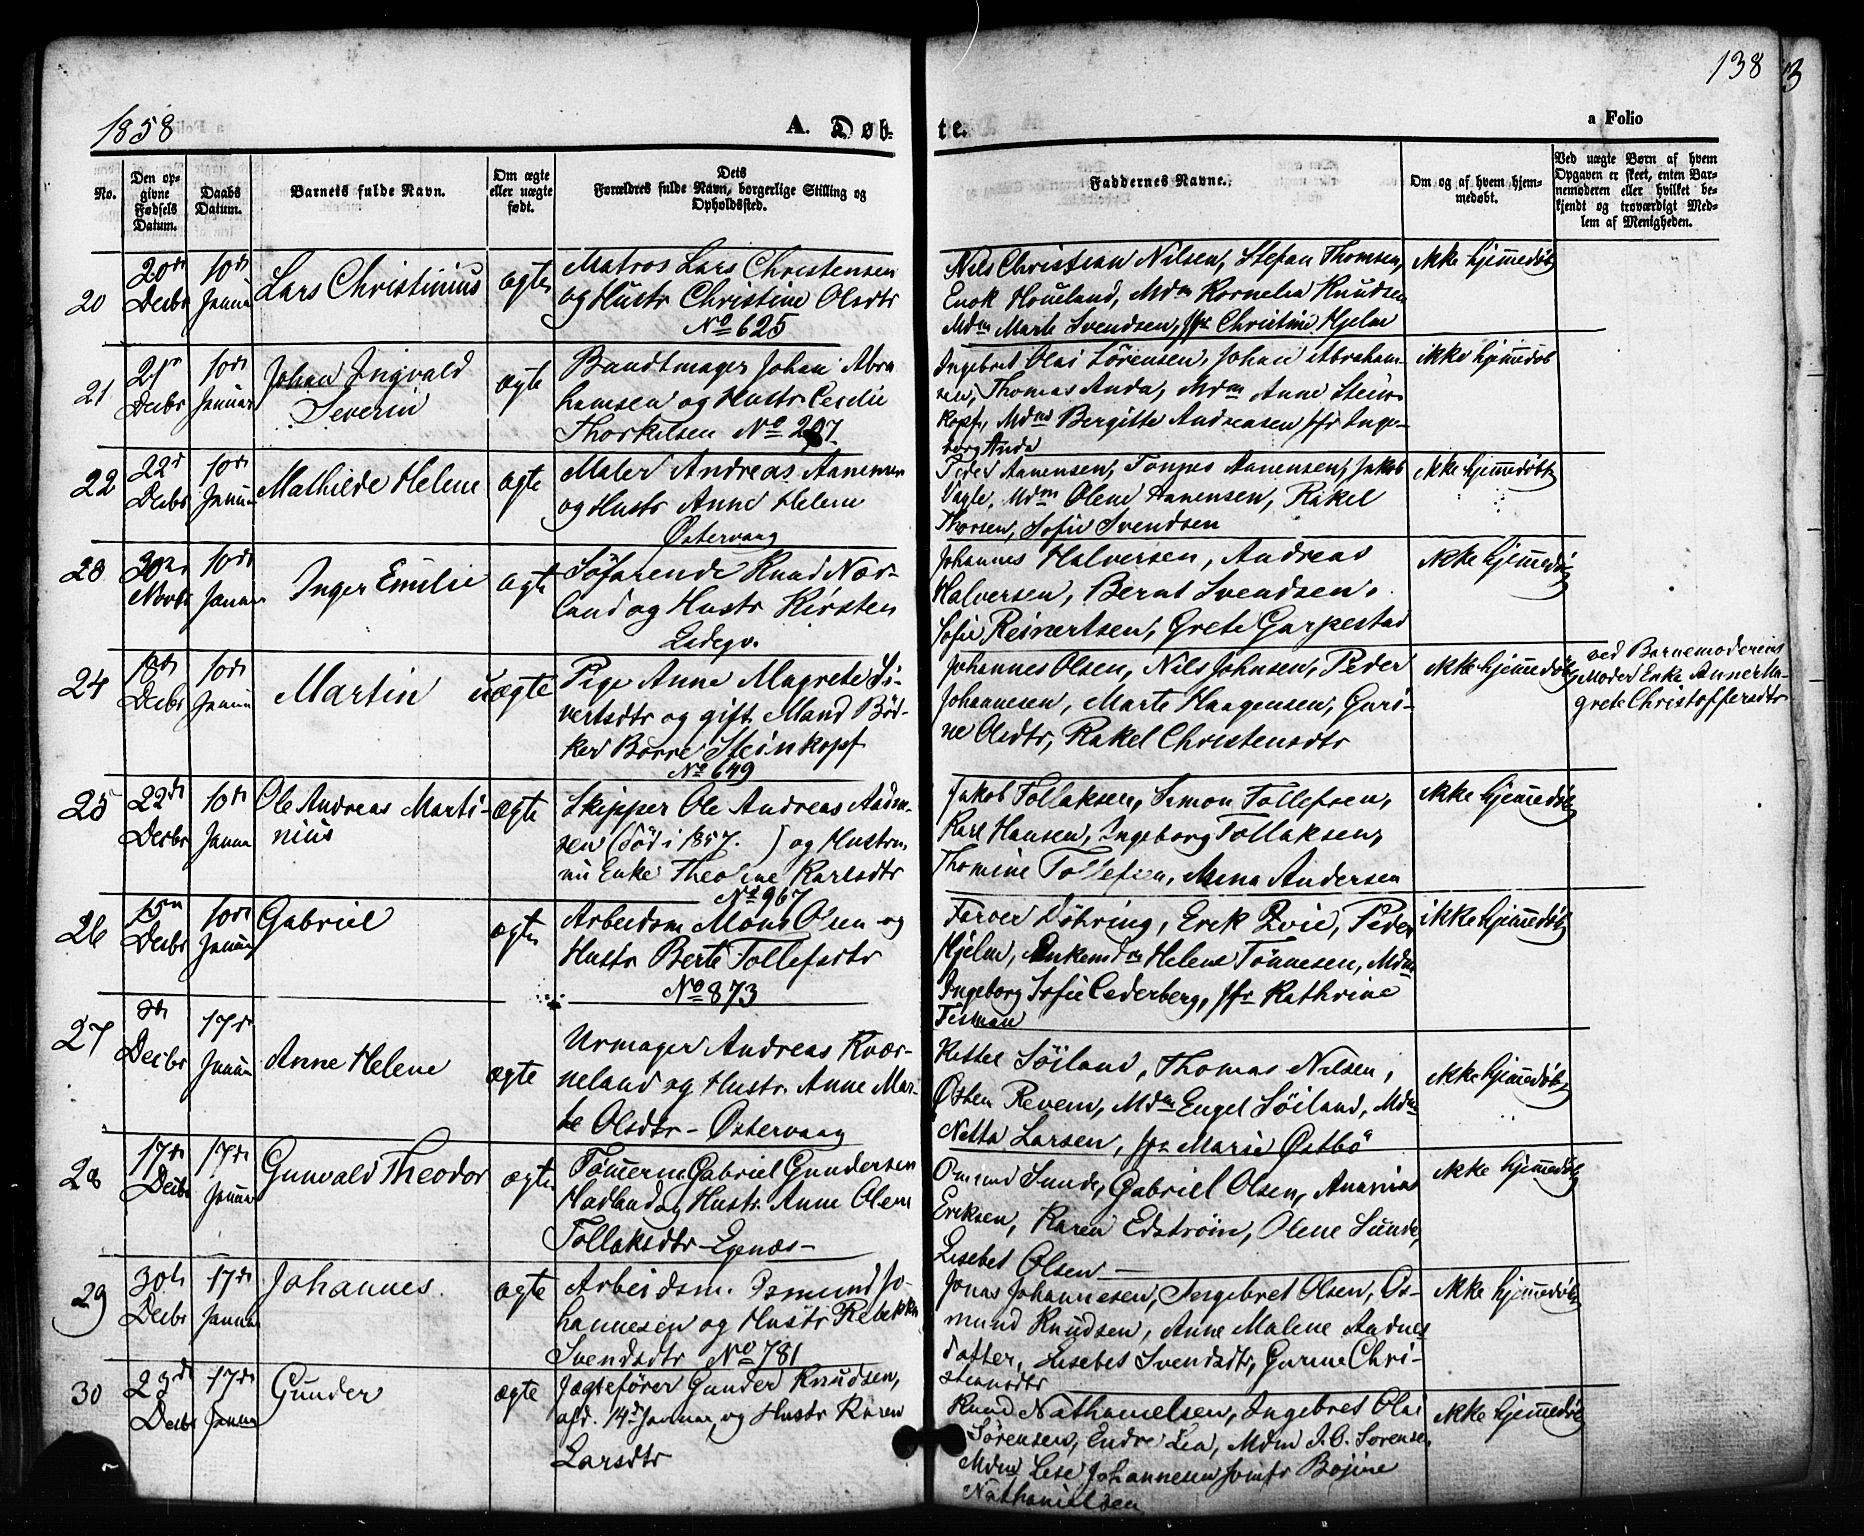 138
3
1858
A. Døb-
te.
a Folio
No.
Den op-
givne
Fødsels
Datum.
Daabs
Datum.
Barnets fulde Navn.
Om ægte
eller uægte
født.
Dets
Forældres fulde Navn, borgerlige Stilling og
Opholdssted.
Faddernes Navne.
Om og af hvem hjem-
medøbt.
Ved uægte Børn af hvem
Opgaven er skeet, enten Bar-
nemoderen eller hvilket be-
kjendt og troværdigt Med-
lem af Menigheden.
20
20de
Decbr
10de
Januar
Lars Christinius
ægte
Matros Lars Christensen
og Hustr Christine Olsdtr
No 625
Nils Christian Nilsen, Stefan Thomsen,
Enok Houeland, Mdm Kornelia Knudsen
Mdm Marte Svendsen, Jfr Christine Hjelm
ikke hjemmedøbt
21
Decbr
10de
Januar
Johan Ingvald
Severin
ægte
Bundtmager Johan Abra
hamsen og Hustr Cecilie
Thorkelsen No 207
Ingebret Olai Sörensen, Johan Abraham-
sen, Thomas Anda, Mdm Anne Stein-
kopf, Mdm Bergitte Andreasen Jfr Inge-
borg Anda
ikke hjemmedøb
22
22d
Decbr
10de
Januar
Mathilde Helene
ægte
Maler Andreas Aanensen
og Hustr Anne Helene
Østervaag
Peder Aanensen, Tönnes Aanensen, Jakob
Vagle, Mdm Olene Aanensen, Rakel
Thorsen, Sofie Svendsen
ikke hjemmedøbt
23
Novbr
10de
Januar
Inger Emilie
ægte
Söfarende Knud Nær-
land og Hustr Kirsten
Ledegv.
Johannes Halversen, Andreas
Halversen, Bernt Svendsen,
Sofie Reinertsen, Grete Garpestad
ikke hjemmedøbt
24
18de
Decbr
10de
Januar
Martin
uægte
Pige Anne Magrete Si-
vertsdtr og gift Mand Bød-
ker Börre Steinkopf
No 649
Johannes Olsen, Nils Johnsen, Peder
Johannesen, Marte Haagensen, Guri-
ne Olsdtr, Rakel Christensdtr
ikke hjemmedøbt
ved Barnemoderens
Moder Enke Anne Ma-
grete Christoffersdtr
25
22de
Decbr
10de
Januar
Ole Andreas Marti-
nius
ægte
Skipper Ole Andreas Aadn-
sen (död i 1857. ) og Hustru
nu Enke Theoline Karlsdtr
No 967
Jakob Tollaksen, Simon Tollefsen,
Karl Hansen, Ingeborg Tollaksen,
Thomine Tollefsen, Mena Andersen
ikke hjemmedøbt
26
15de
Decbr
10de
Januar
Gabriel
ægte
Arbeidsm Mons Olsen og
Hustr Berte Tollefsdtr
No 873
Farver Döhring, Erik Zvie, Peder
Hjelm, Enkemdm Helene Tönnesen, Mdm
Ingeborg Sofie Cederberg, Jfr Kathrine
ikke hjemmedøbt
27
Decbr
17de
Januar
Anne Helene
ægte
Urmager Andreas Kvær-
neland og Hustr. Anne Mar-
te Olsdtr - Østervaag
Kittel Söiland, Thomas Nilsen,
Østen Revem, Mdm Engel Söiland, Mdm
Netta Larsen, Jfr Marie Østbö
ikke hjemmedøbt
28
17de
Decbr
17de
Januar
Gunvald Theodor
ægte
Tömmerm Gabriel Gundersen
Madland og Hustr. Anne Olene
Tollaksdtr - Egenæs -
Omund Sunde, Gabriel Olsen, Ananias
Eriksen, Karen Edström, Olene Sunde,
Lisebet Olsen
ikke hjemmedøbt
29
30te
Decbr
17de
Januar
Johannes.
ægte
Arbeidsm. Osmund Jo-
hannesen og Hustr Rebekka
Svendsdtr No 781
Jonas Johannesen, Ingebret Olsen, Os-
mund Knudsen, Anne Malene Aadnes
datter, Lisebet Svendsdtr, Gurine Chri-
stensdtr
ikke hjemmedøbt
30
23de
Decbr
17de
Januar
Gunder
ægte
Jægtefører Gunder Knudsen,
afd. 14d Januar, og Hustr Karen
Larsdtr
Knud Nathanielsen, Ingebret Olai
Sörensen, Endre Lea, Mdm J. O. Sorensen
Mdm Lise Johannesen Jomfr Bojine
Nathanielsen
ikke hjemmedøbt